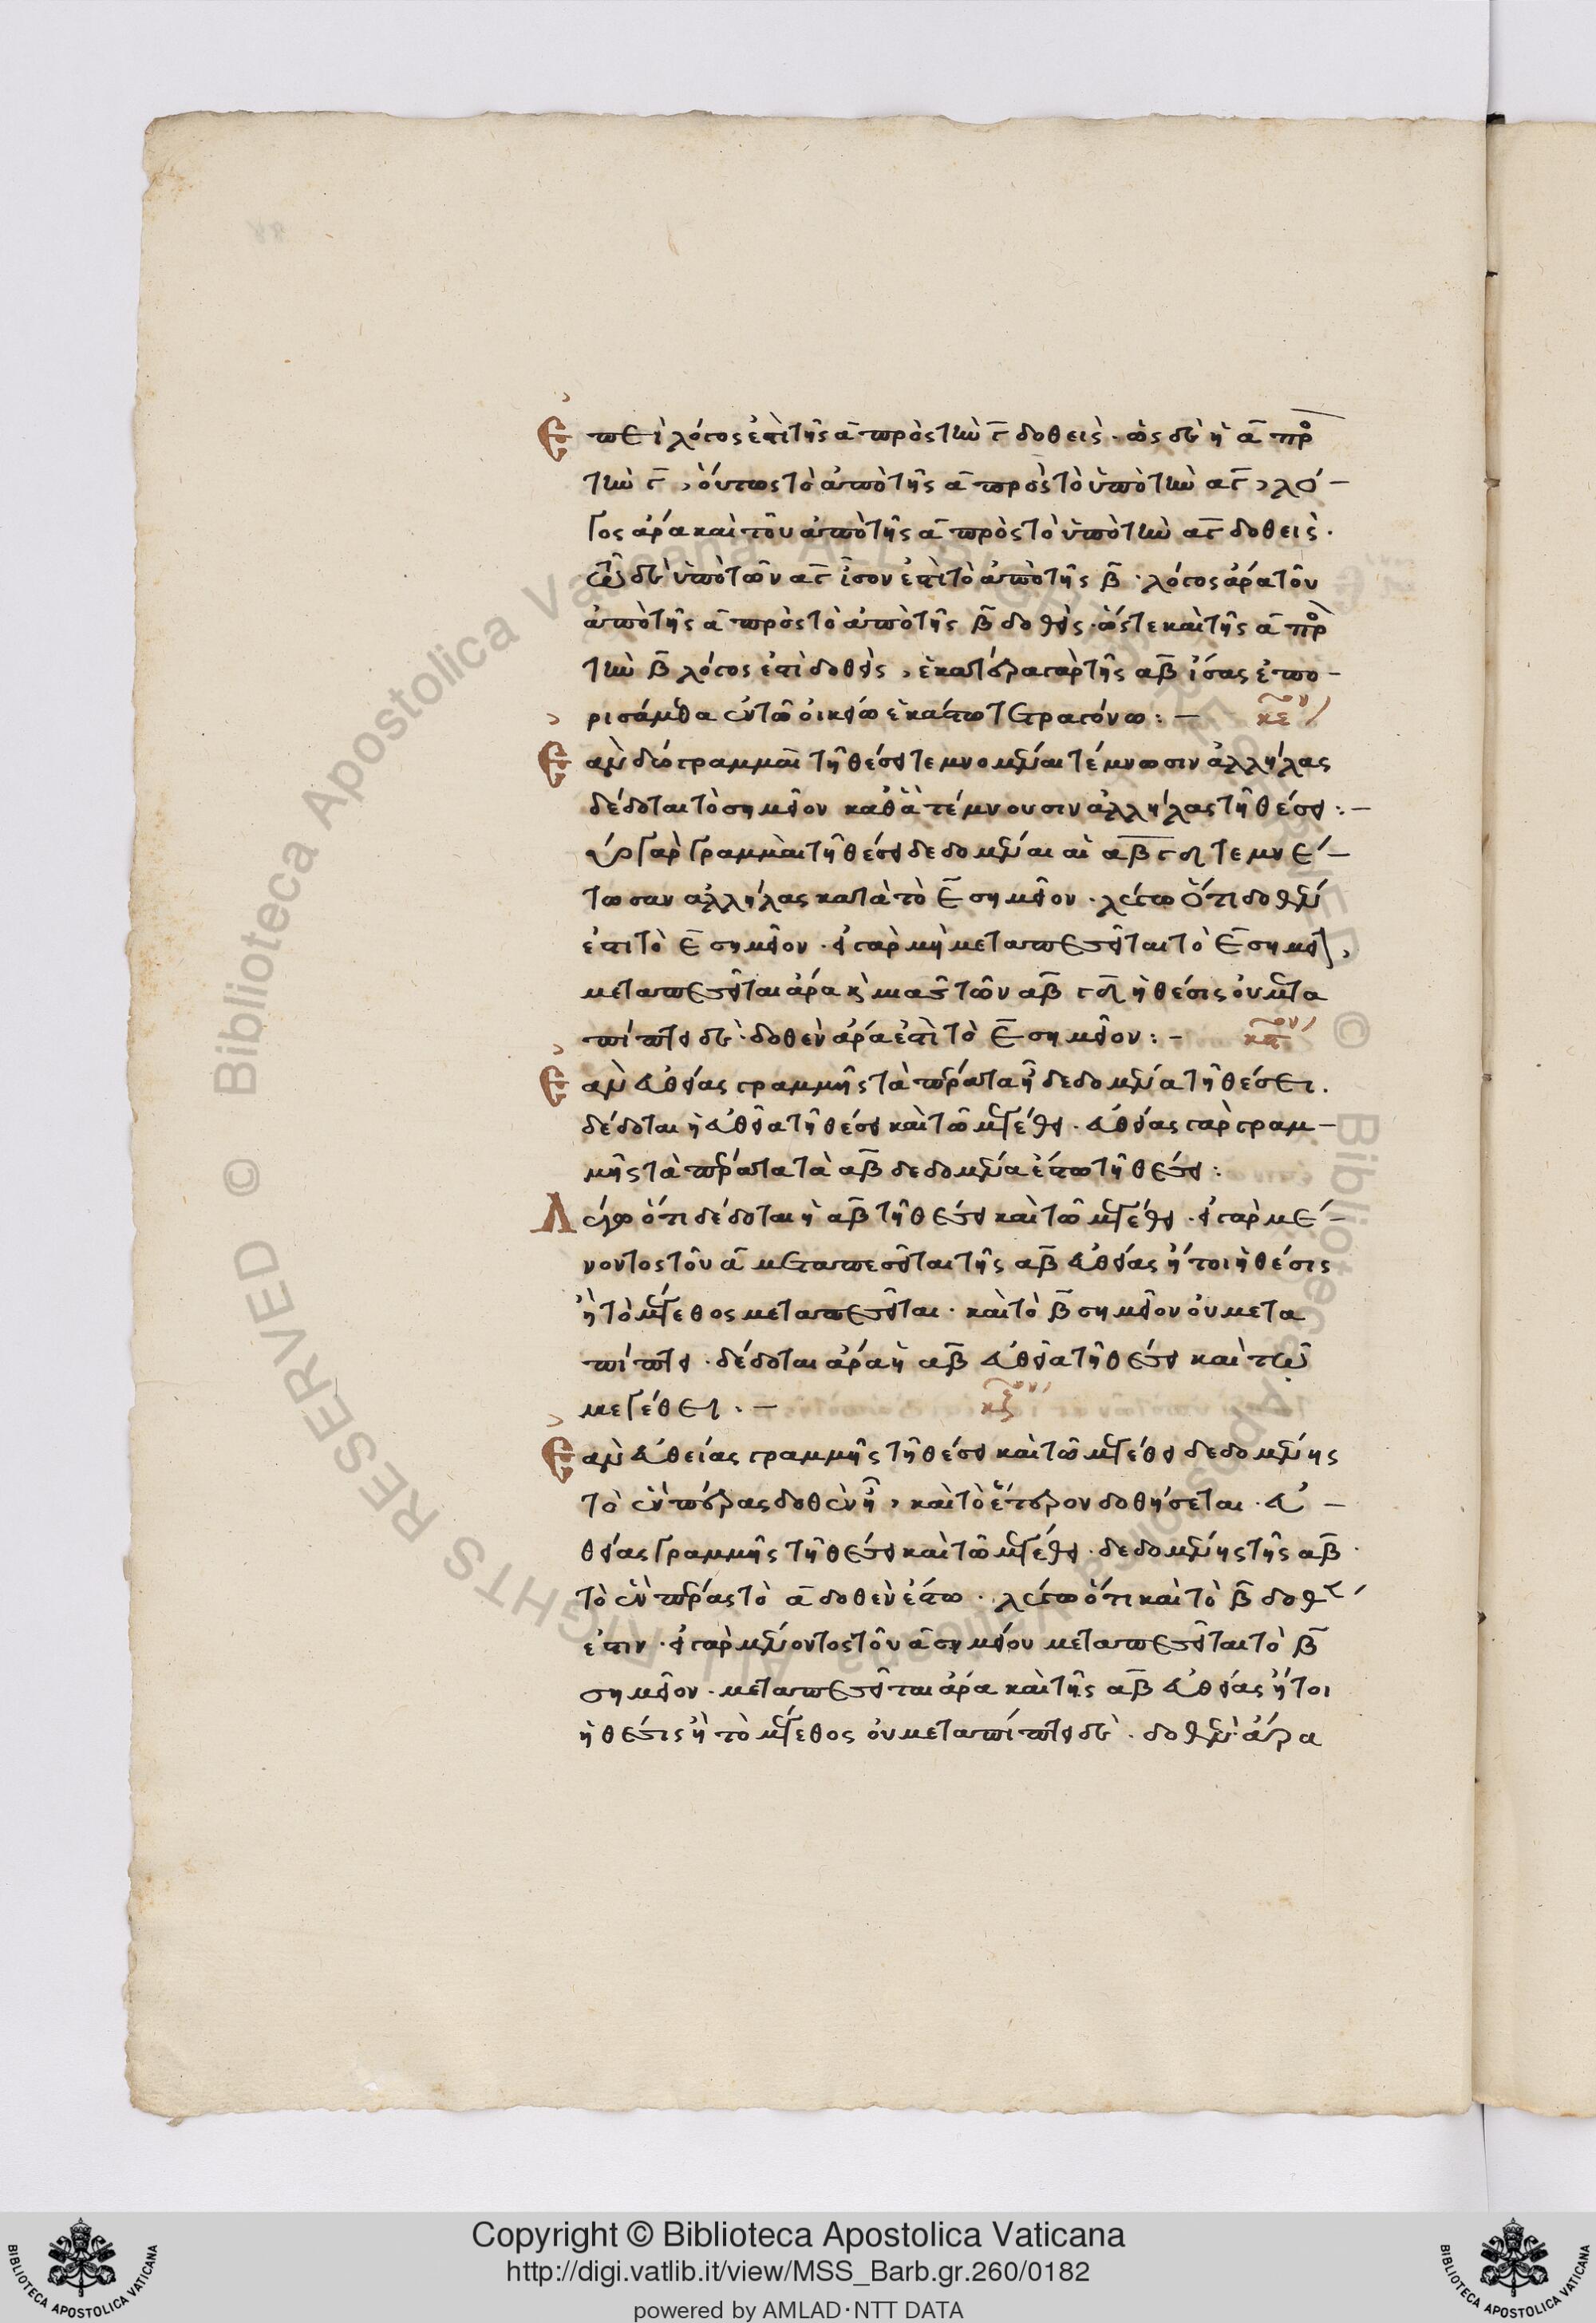 Ἐπεὶ λόγος ἐστὶ τῆς α πρὸς τὴν γ δοθεὶς · ὡς δὲ ἡ α πρὸς
τὴν γ, οὕτως τὸ ἀπὸ τῆς α πρὸς τὸ ὑπὸ τὴν αγ, λό-
γος ἄρα καὶ τοῦ ἀπὸ τῆς α πρὸς τὸ ὑπὸ τὴν αγ δοθεὶς.
τῶ δὲ ὑπὸ τῶν αγ ἴσον ἐστὶ τὸ ἀπὸ τῆς β · λόγος ἄρα τοῦ
ἀπὸ τῆς α πρὸς τὸ ἀπὸ τῆς β δοθεὶς · ὥστε καὶ τῆς α πρὸς
τὴν β λόγος ἐστὶ δοθεὶς, ἑκατέρα γὰρ τῆς αβ ἴσας ἐπο-
ρισάμεθα ἐν τῶ οἰκείω ἑκάστω τετραγόνω :— κε
Ἐὰν δύο γραμμαὶ τῆ θέσει δεδομέναι τέμνωσιν ἀλλήλας
δέδοται τὸ σημεῖον καθ' ὃ τέμνουσιν ἀλλήλας τῆ θέσει :—
γὰρ γραμμαὶ τῆ θέσει δεδομέναι αἱ αβ γδ τεμνέ-
τωσαν ἀλλήλας κατὰ τὸ ε σημεῖον · λέγω ὅτι δοθὲν
ἐστι τὸ ε σημεῖον · εἰ γὰρ μὴ μεταπεσεῖται τὸ ε σημεῖον,
μεταπεσεῖται ἄρα καὶ μιᾶς τῶν αβ γδ ἡ θέσις οὐ μετα
πίπτει δὲ · δοθὲν ἄρα ἐστὶ τὸ ε σημεῖον :— κϛ
Ἐὰν εὐθείας γραμμῆς τὰ πέρατα ἦ δεδομένα τῆ θέσει.
δέδοται ἡ εὐθεῖα τῆ θέσει καὶ τῶ μεγέθει · εὐθείας γὰρ γραμ-
μῆς τὰ πέρατα τὰ αβ δεδομένα ἔστω τῆ θέσει :
Λέγω ὅτι δέδοται ἡ αβ τῆ θέσει καὶ τῶ μεγέθει · εἰ γὰρ μέ-
νοντος τοῦ α μεταπεσεῖται τῆς αβ εὐθείας ἤτοι ἡ θέσις
ἢ τὸ μέγεθος μεταπεσεῖται · καὶ τὸ β σημεῖον οὐ μετα
πίπτει · δέδοται ἄρα ἡ αβ εὐθεῖα τῆ θέσει καὶ τῶ
μεγέθει .— κζ
Ἐὰν εὐθείας γραμμῆς τῆ θέσει καὶ τῶ μεγέθει δεδομένης
τὸ ἓν πέρας δοθὲν ἦ, καὶ τὸ ἕτερον δοθήσεται · εὐ-
θείας γραμμῆς τῆ θέσει καὶ τῶ μεγέθει · δεδομένης τῆς αβ ·
τὸ ἓν πέρας τὸ α δοθὲν ἔστω · λέγω ὅτι καὶ τὸ β δοθέν
ἐστιν · εἰ γὰρ μένοντος τοῦ α σημείου μεταπεσεῖται τὸ β
σημεῖον · μεταπεσεῖται ἄρα καὶ τῆς αβ εὐθείας ἤτοι
ἡ θέσις ἢ τὸ μέγεθος οὐ μεταπίπτει δὲ · δοθὲν ἄρα
© Biblioteca Apostolica Vaticana ALL RIGHTS RESERVED
Copyright © Biblioteca Apostolica Vaticana
http://digi.vatlib.it/view/MSS_Barb.gr.260/0182
powered by AMLAD·NTT DATA
BIBLIOTECA APOSTOLICA VATICANA
BIBLIOTECA APOSTOLICA VATICANA